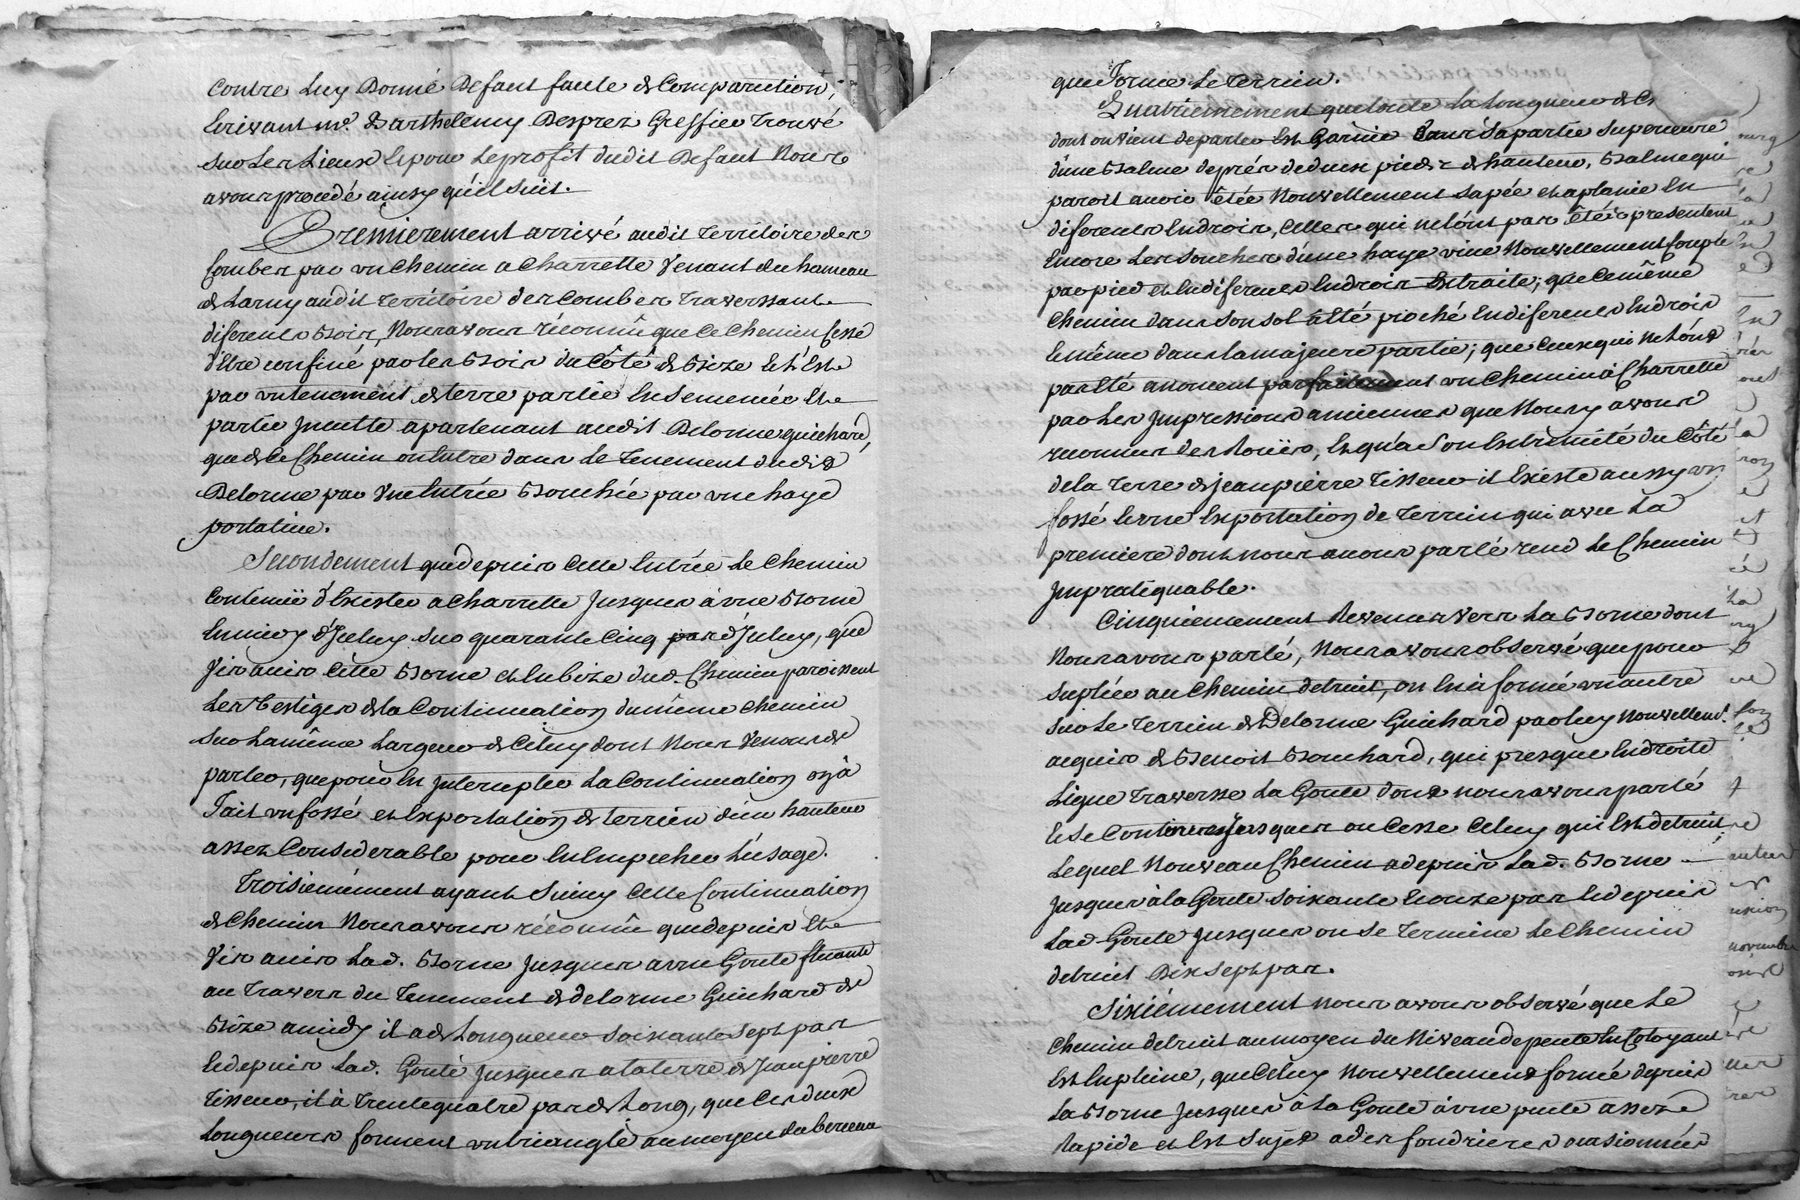 contre Luy Donné Defaut faute de Comparution,
Ecrivant mr. Barthelemy Desprez Greffier trouvé
sur Les Lieux et pour Le profit dudit Defaut Nous
avons procedé ainsy qu'il suit.
Premierement arrivé audit territoire des
Combes par un chemin a Charrette venant du hameau
de Larny audit territoire des Combes traverssant
diferents Bois, Nous avons réconnû que Ce Chemin Cesse
d'Etre confiné par les Bois du Côté de Bize et L'est
par un tenement de terre partie Ensemencée et
partie Inculte apartenant audit Delorme guichard,
que de Ce Chemin on Entre dans Le tenement dudit
Delorme par une Entrée Bouchée par une haye
portative.
Secondement que depuis Cette Entrée Le Chemin
Continüe d'Exister a Charrette Jusques à une Borne
En mur d'Jceluy sur quarante Cinq pas d'Jceluy, que
Vis avis Cette Borne et En bize dud. Chemin paroissent
Les Vestiges de la Continuation du même Chemin
sur La même Largeur de Celuy dont Nous Venons de
parler, que pour En Interrupter La Continuation on y à
Fait un fossé et Exportation de terrein d'une hauteur
assez Considerable pour En Empecher L'usage.
Troisiemement ayant Suivy Cette Continuation
de Chemin Nous avons réconnû que depuis Et
Vis avis Lad. Borne Jusques a une Goute fluante
au travers du Tenement de delorme Guichard de
Bize amidy il a de Longueur soixante sept pas
Et depuis Lad. Goute Jusques a la terre de Jean pierre
Tisseur, il à trente quatre pas de Long, que Ces deux
Longueurs forment un triangle au moyen du berceau
que Forme Le terrein.
Quatriemement que toute La Longueur de C
dont on Vient de parler Est Garnie dans sa partie superieure
d'une Balme de près de deux pieds de hauteur, Balme qui
paroit avoir êtée Nouvellement sapée et aplanie En
diferents Endroits, Celles qui ne L'ont pas êtées presentent
Encore Les souches d'une haye vive Nouvellement Coupée
par pied et En diferents Endroits Extraite, que Ce même
Chemin dans son sol à Eté pioché En diferents Endroits
Et même dans La majeure partie; que Ceux qui ne L'ont
pas Eté anoncent parfaitement un Chemin à Charrette
par Les Impressions anciennes que Nous y avons
reconnues des Roües, Et qu'a son Extremité du Côté
de la terre de Jean pierre Tisseur il Existe aussy un
fossé Et une Exportation de terrein qui avec La
premiere dont nous avons parlé rend Le Chemin
Jmpratiquable.
Cinquiemement Revenus vers La Borne dont
Nous avons parlé, Nous avons observé que pour
supléer au Chemin detruit, on En à formé un autre
sur Le terrein de Delorme Guichard par Luy Nouvellemt.
acquis de Benoit Bouchard, qui presque En droite
Ligne traversse La Goute dont nous avons parlé
Et se Continue Jusques ou Cesse Celuy qui Est detruit,
Lequel Nouveau Chemin a depuis Lad. Borne
Jusques à la Goute soixante Et onze pas Et depuis
Lad. Goute Jusques ou se termine Le Chemin
detruit Dix sept pas.
Sixiémement nous avons observé que Le
Chemin detruit au moyen du Niveau de pente En Cotoyant
Est En pleine, que Celuy Nouvellement formé depuis
La Borne Jusques à La Goute à une pente assez
Rapide et Est sujet a des fondrieres ocasionnées